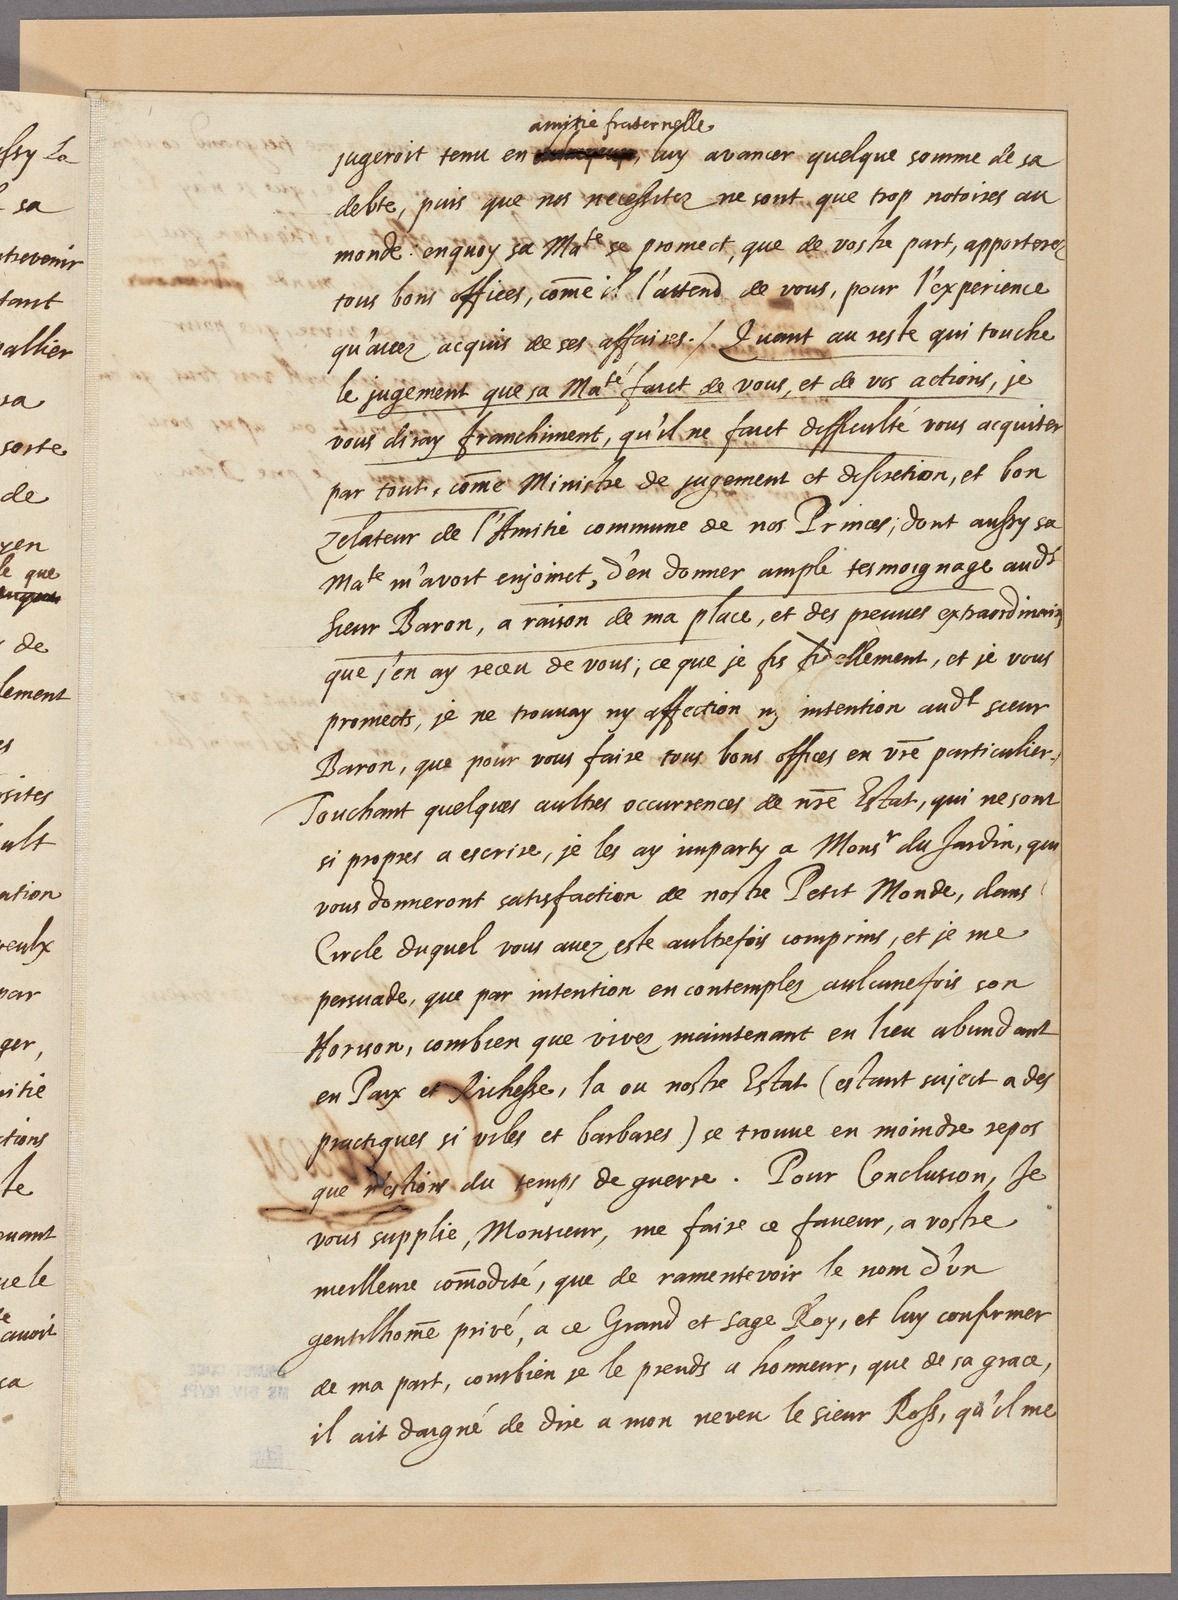 amitie fraternelle
jugeroit tenu en luy avancer quelque somme de sa
debte, puis que nos necessitez ne sont que trop notoires au
monde: enquoy sa Mate se promect, que de vostre part, apporterez
tous bons offices, come il l'attend de vous, pour l'experience
qu'avez acquis de ses affaires./ Quant au reste qui touche
le jugement que sa Mate faict de vous, et de vos actions, je
vous diray franchiment, qu'il ne faict difficulté vous acquiter
par tout, come Ministre de jugement et discretion, et bon
zelateur de l'Amitié commune de nos Princes; dont aussy sa
Mate m'avoit enjoinct, d'en donner ample tesmoignage audt
sieur Baron, a raison de ma place, et des preuves extraordinaires
que j'en ay receu de vous; ce que je fis fidellement, et je vous
promects, je ne trouvay ny affection ny intention audt sieur
Baron, que pour vous faire tous bons offices en vre particulier.
Touchant quelques aultres occurrences de nre Estat, qui ne sont
si propres a escrire, je les ay imparty a Monsr du Jardin, qui
vous donneront satisfaction de nostre Petit Monde, dans
Circle duquel vous avez esté aultrefois comprins, et je me
persuade, que par intention en contemplez aulcunefois son
Horison, combien que vivez maintenant en lieu abundant
en Paix et Richesse, la ou nostre Estat (estant suject a des
practiques si viles et barbares) se trouve en moindre repos
que n'estions du temps de guerre. Pour Conclusion, Je
vous supplie, Monsieur, me faire ce faveur, a vostre
meilleure comodité, que de ramentevoir le nom d'un
gentilhome privé, a ce Grand et sage Roy, et luy confirmer
de ma part, combien je le prends a honneur, que de sa grace,
il ait daigné de dire a mon neveu le sieur Ross, qu'il me